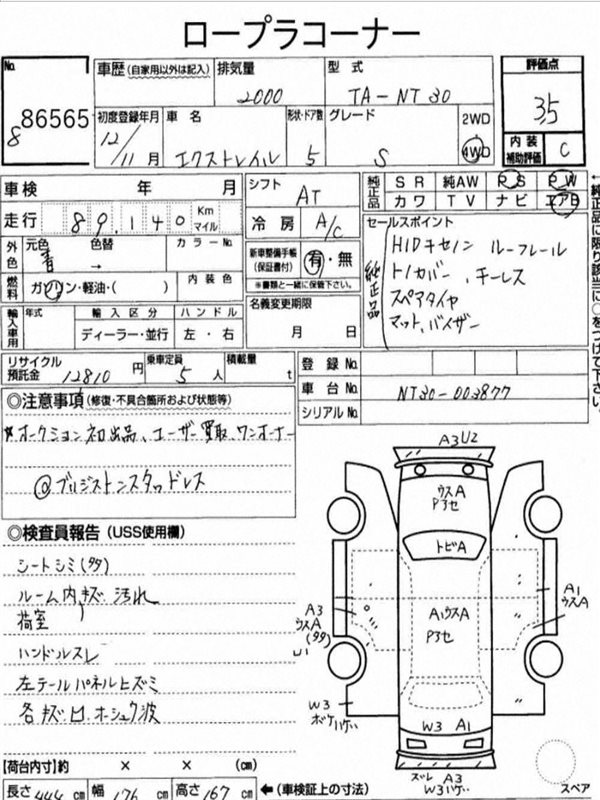 ロープラコーナー
No. 8 86565
車歴（自家用以外は記入） 排気量 2000 型式 TA-NT30
評価点 3.5
初度登録年月 12/11月 車名 エクストレイル 形状・ドア数 5 グレード S 2WD 4WD
内装補助評価 C
車検 年 月 シフト AT
純正品 SR 純AW PS PW
カワ TV ナビ エアB
走行 89,140 Km マイル 冷房 A/C
外色 元色 青 色替 → カラーNo.
燃料 ガソリン・軽油・( ) 内装色
新車整備手帳（保証書付） 有・無
※書類と一緒に保管下さい。
セールスポイント
純正品
HIDキセノン ルーフレール
トノカバー、キーレス
スペアタイヤ
マット、バイザー
輸入車用 年式 輸入区分 ハンドル
ディーラー・並行 左・右
名義変更期限
月 日
リサイクル預託金 12810円 乗車定員 5人 積載量 t
登録No.
車台No. NT30-003877
シリアルNo.
◎注意事項（修復・不具合箇所および状態等）
オークション初出品、ユーザー買取、ワンオーナー
◎ブリジストンスタッドレス
◎検査員報告（USS使用欄）
シートシミ(多)
ルーム内キズ 汚れ
荷室
ハンドルスレ
左テールパネルヒズミ
各キズ凹、ホシュウ波
A3 U2
ウスA
P3セ
トビA
A1ウスA
P3セ
A3
ウスA
(多)
U1
W3
ボケハゲ
A1
ウスA
W3 A1
ズレ A3
W3ハゲ
スペア
【荷台内寸】約 × × (cm)
長さ 444 cm 幅 176 cm 高さ 167 cm ←（車検証上の寸法）
↑純正品に限り該当に○をつけて下さい。